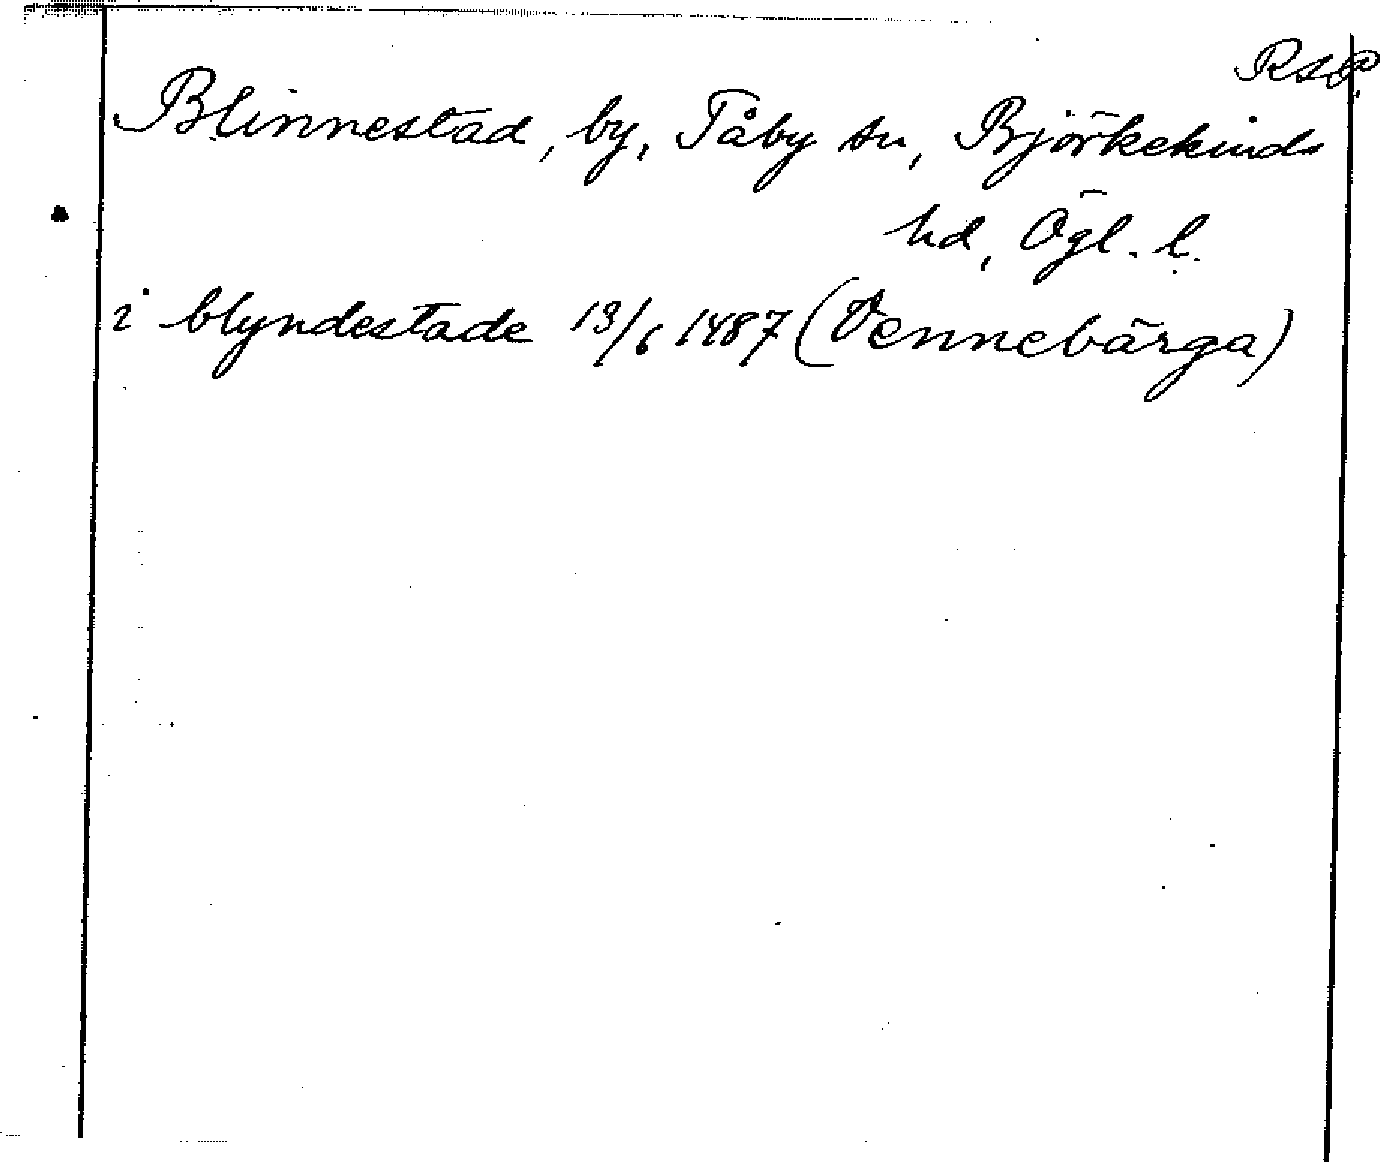 RAP.
Blinnestad, by, Tåby sn, Björkekinds
hd, Ögl. l.
i blyndestade 13/6 1487 (Vennebärga)